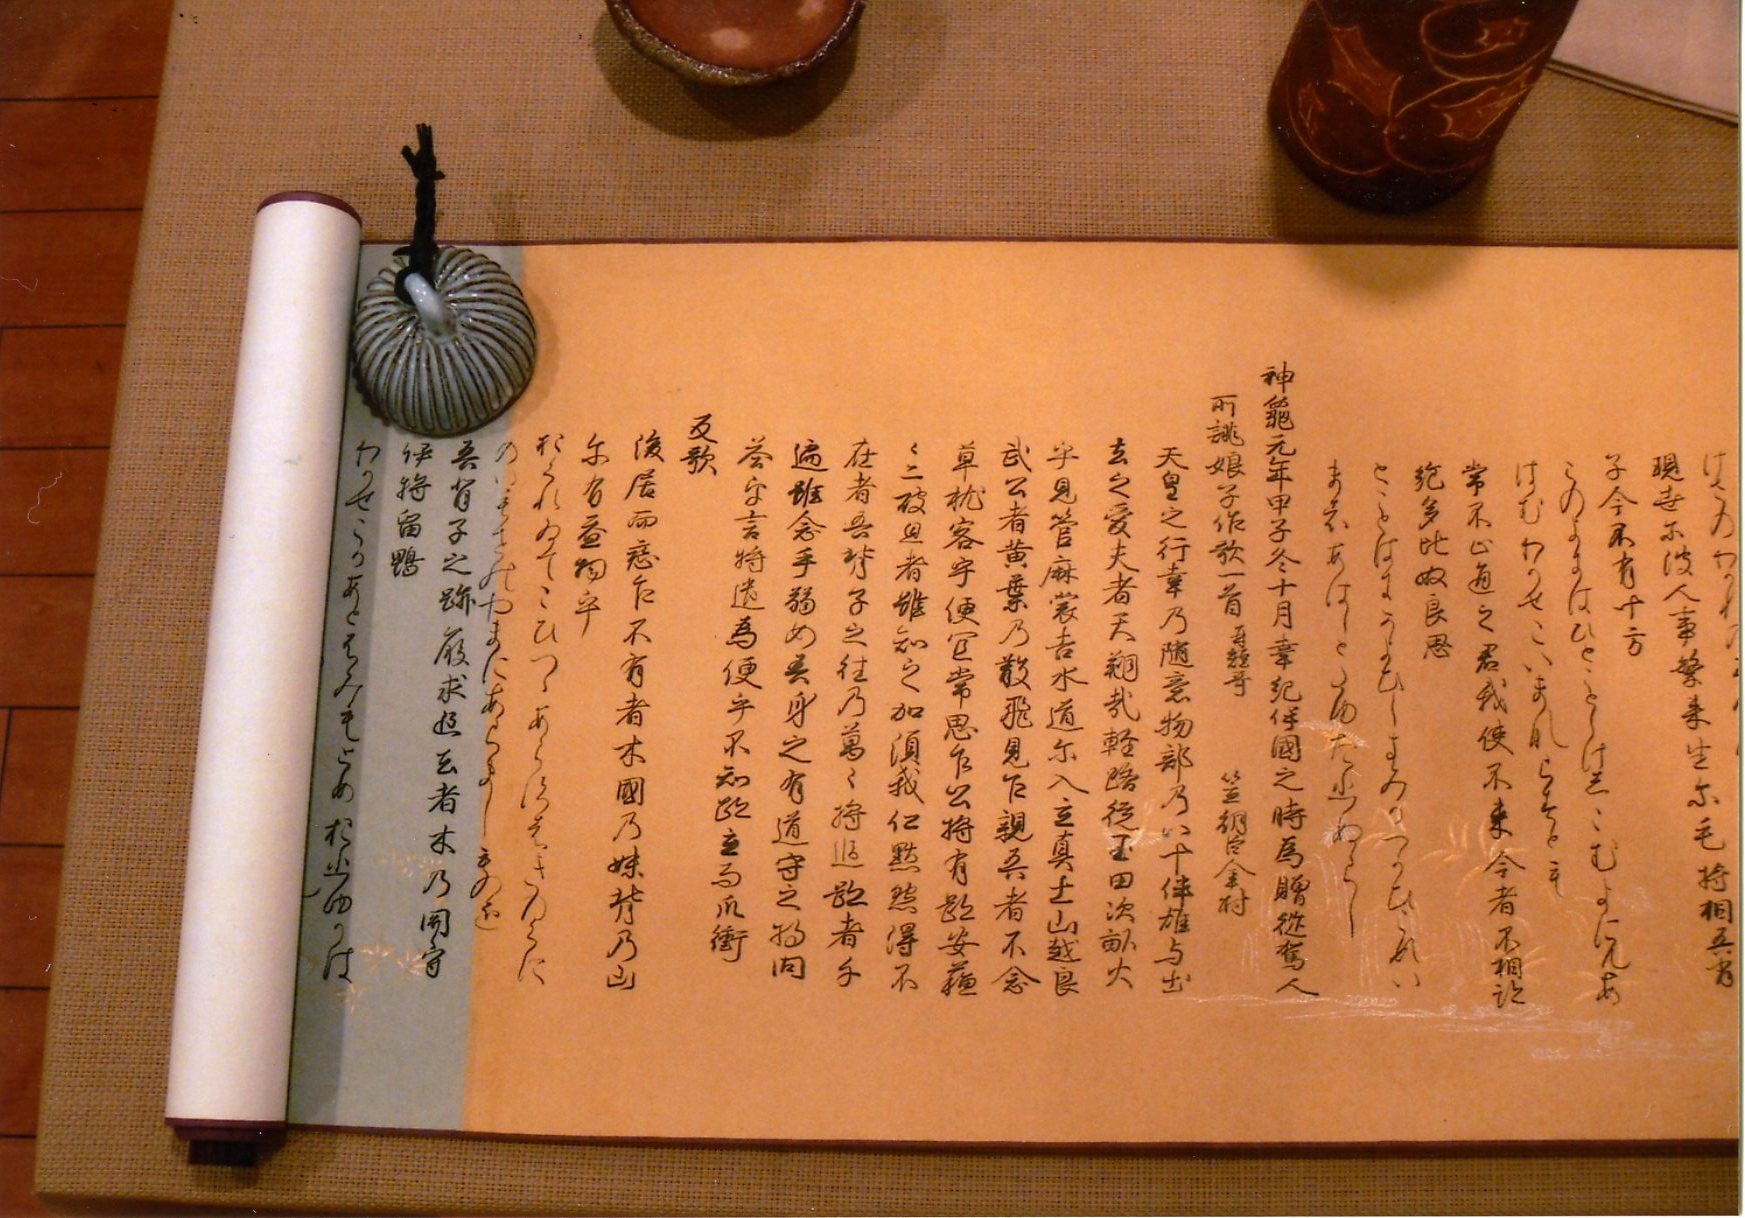 けさのわかれの
現世尓波人事繁来生尓毛将相吾背
子今不有十方
このよにはひとことしけしこむよにもあ
はむわかせこいまならすとも
常不止通之君我使不来今者不相跡
絶多比奴良思
とことはにかよひしきみかつかひこすい
まはあはしとたゆたひぬらし
神龜元年甲子冬十月幸紀伊國之時為贈従駕人
所誂娘子作歌一首 并短哥 笠朝臣金村
天皇之行幸乃随意物部乃八十伴雄与出
去之愛夫者天翔哉軽路従玉田次畝火
乎見管麻裳吉木道尓入立真土山越良
武公者黄葉乃散飛見乍親吾者不念
草枕客乎便宜常思乍公将有跡安蘇
ゝ二破且者雖知之加須我仁黙然得不
在者吾背子之往乃萬々将追跡者千
遍雖念手弱女吾身之有道守之将問
答乎言将遣為便乎不知跡立而爪衝
反歌
後居而戀乍不有者木國乃妹背乃山
尓有益物乎
おくれゐてこひつゝあらすはきのくに
のいもせのやまにあらましものを
吾背子之跡履求追去者木乃関守
伊将留鴨
わかせこかあとふみもとめおひゆかは